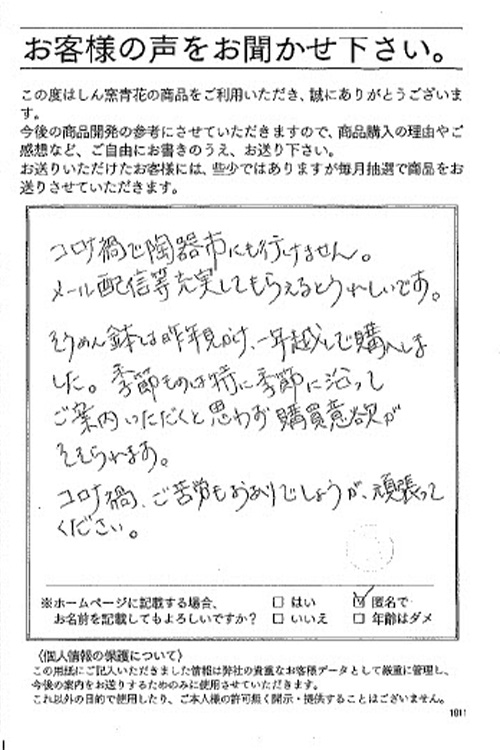 お客様の声をお聞かせ下さい。
この度はしん窯青花の商品をご利用いただき、誠にありがとうございま
す。
今後の商品開発の参考にさせていただきますので、商品購入の理由やご
感想など、ご自由にお書きのうえ、お送り下さい。
お送りいただけたお客様には、些少ではありますが毎月抽選で商品をお
送りさせていただきます。
コロナ禍で陶器市にも行けません。
メール配信等充実してもらえるとうれしいです。
そうめん鉢は昨年見かけ、一年越しで購入しま
した。季節ものは特に季節に沿って
ご案内いただくと思わず購買意欲が
そそられます。
コロナ禍、ご苦労もおありでしょうが、頑張って
ください。
※ホームページに記載する場合、 □ はい ☑ 匿名で
お名前を記載してもよろしいですか? □ いいえ □ 年齢はダメ
〈個人情報の保護について〉
この用紙にご記入いただきました情報は弊社の貴重なお客様データとして厳重に管理し、
今後の案内をお送りするためのみに使用させていただきます。
これ以外の目的で使用したり、ご本人様の許可無く開示・提供することはございません。
1011